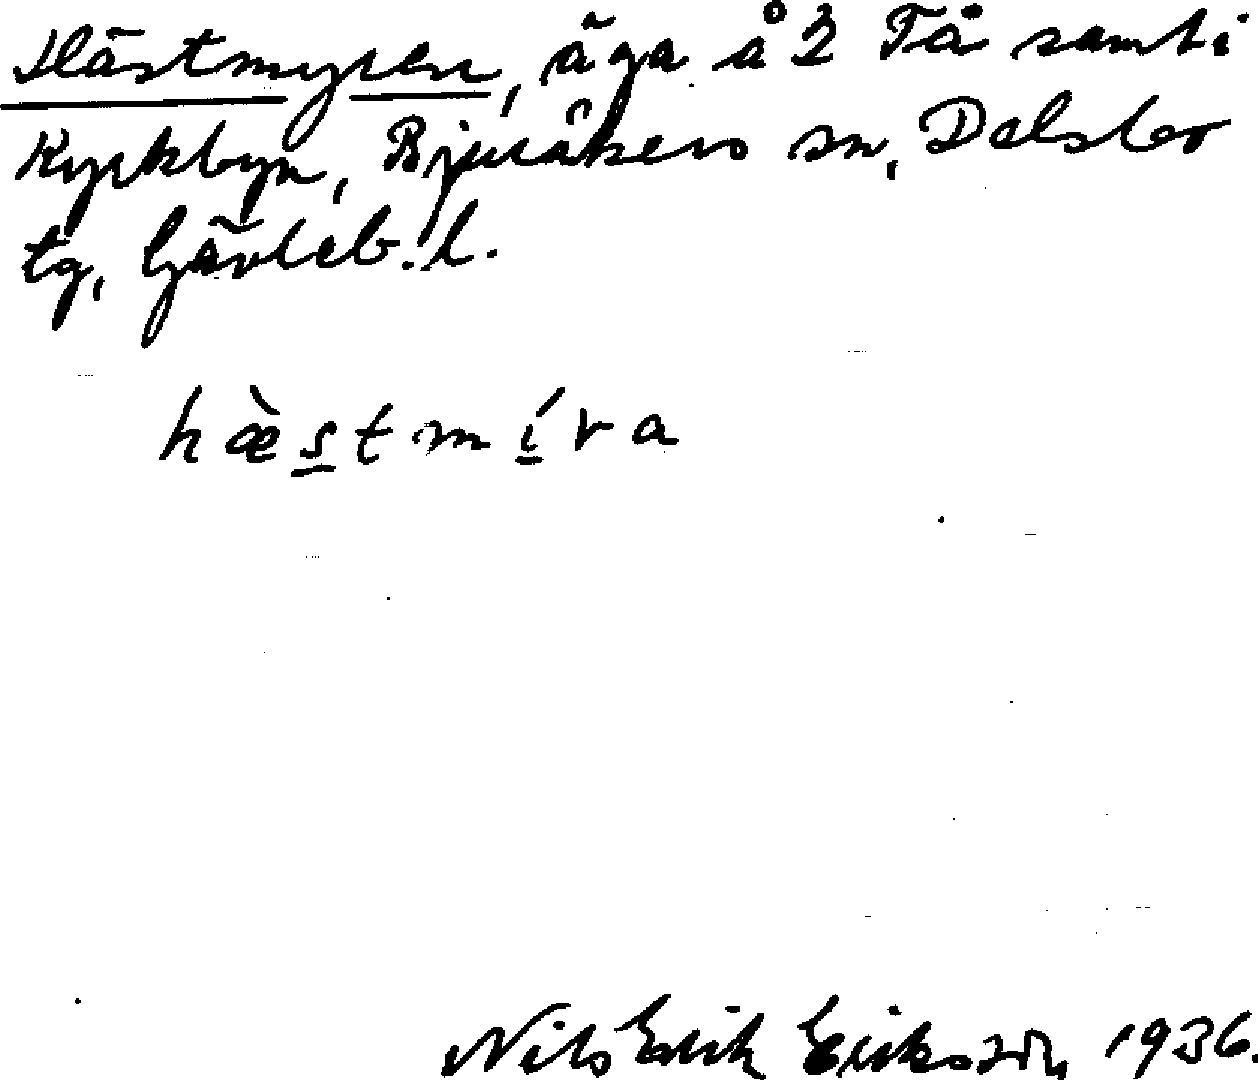 Hästmyren, äga å 2 Tå samt i
Kyrkbyn, Bjuråkers sn, Delsbo
tg, Gävleb. l.
hæ̀stmíra
Nils Erik Eriksson, 1936.